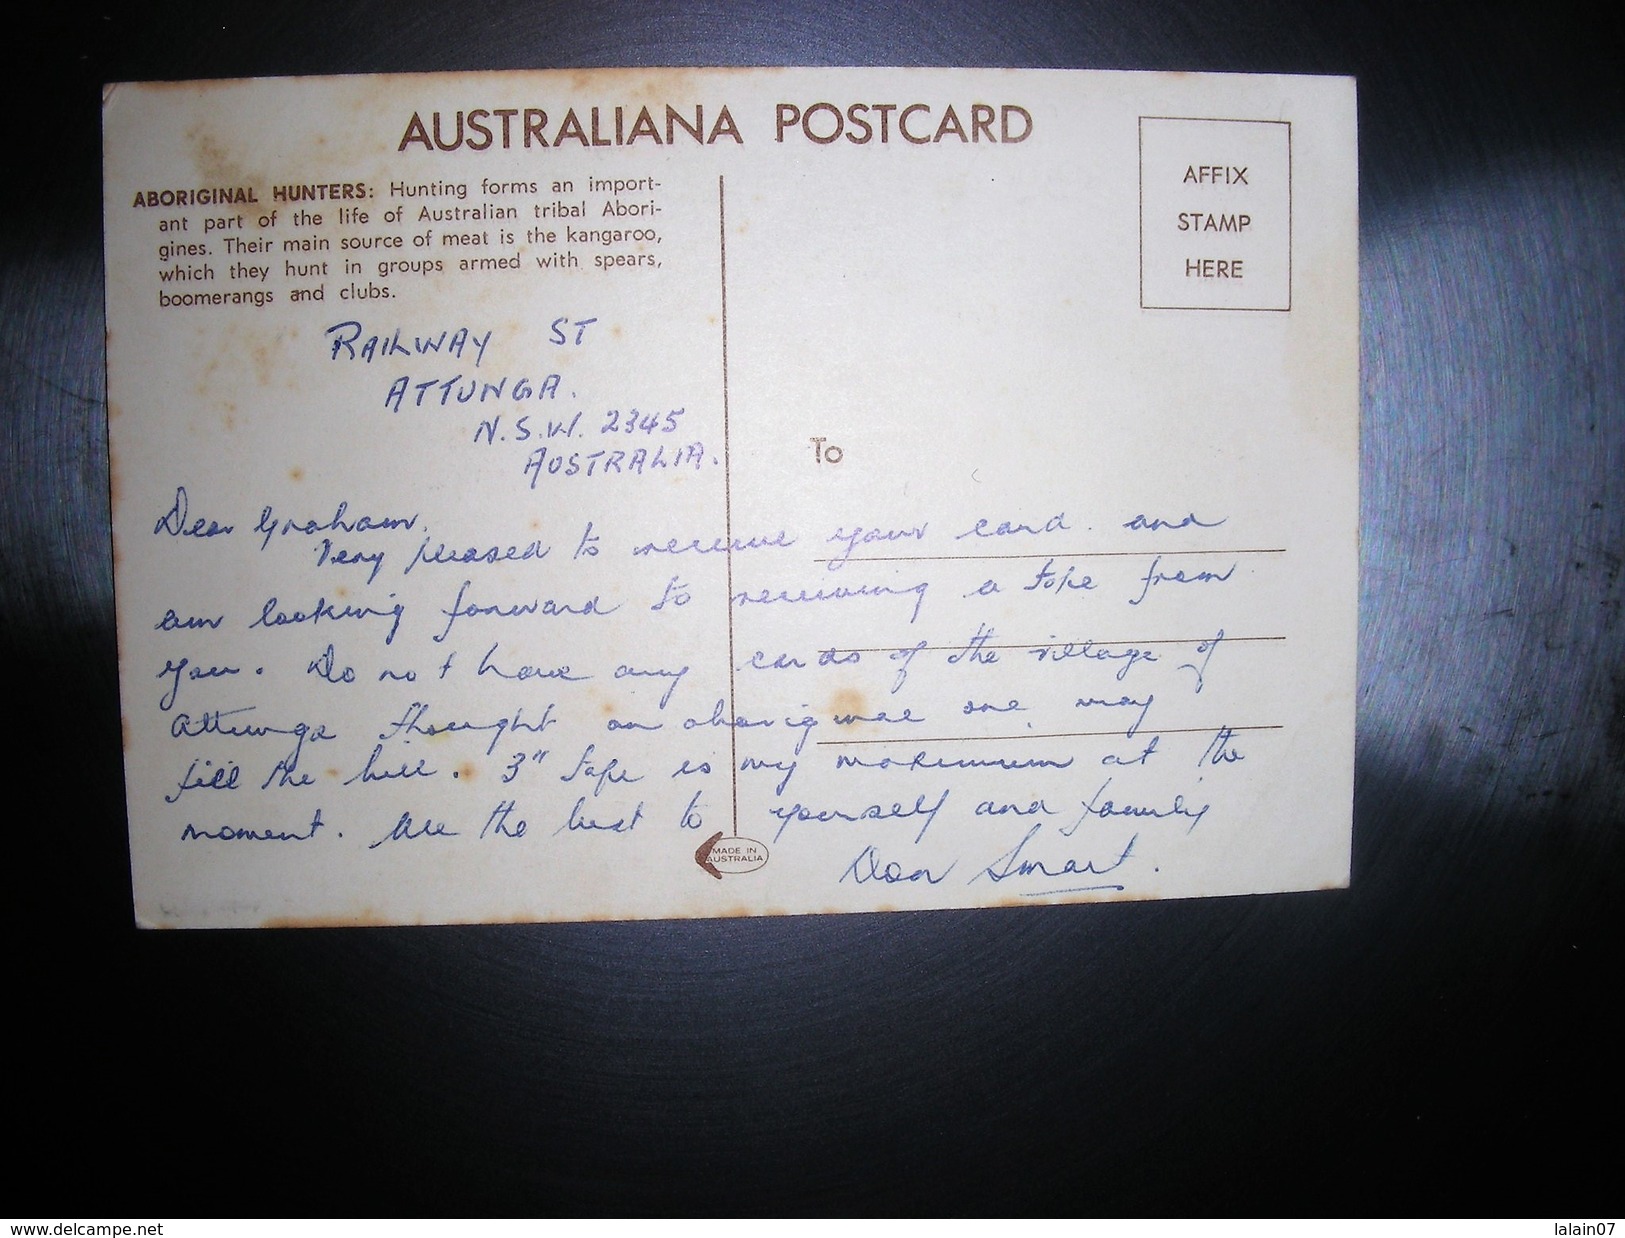 AUSTRALIANA POSTCARD
AFFIX
STAMP
HERE
ABORIGINAL HUNTERS: Hunting forms an import-
ant part of the life of Australian tribal Abori-
gines. Their main source of meat is the kangaroo,
which they hunt in groups armed with spears,
boomerangs and clubs.
RAILWAY ST
ATTUNGA.
N.S.W. 2345
AUSTRALIA.
To
Dear Graham,
Very pleased to receive your card and
am looking forward to receiving a tape from
you. Do not have any cards of the village of
Attunga thought an aboriginae one may
fill the bill. 3" tape is my maximum at the
moment. All the best to yourself and family
Don Smart.
MADE IN
AUSTRALIA
www.delcampe.net
lalain07